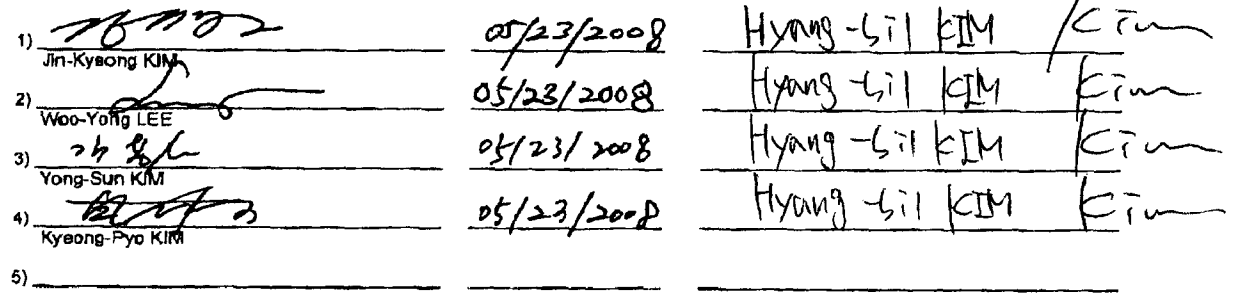 1) 05/23/2008 Hyang-sil KIM Kim
Jin-Kyeong KIM
2) 05/23/2008 Hyang-sil KIM Kim
Woo-Yong LEE
3) 05/23/2008 Hyang-sil KIM Kim
Yong-Sun KIM
4) 05/23/2008 Hyang-sil KIM Kim
Kyeong-Pyo KIM
5)